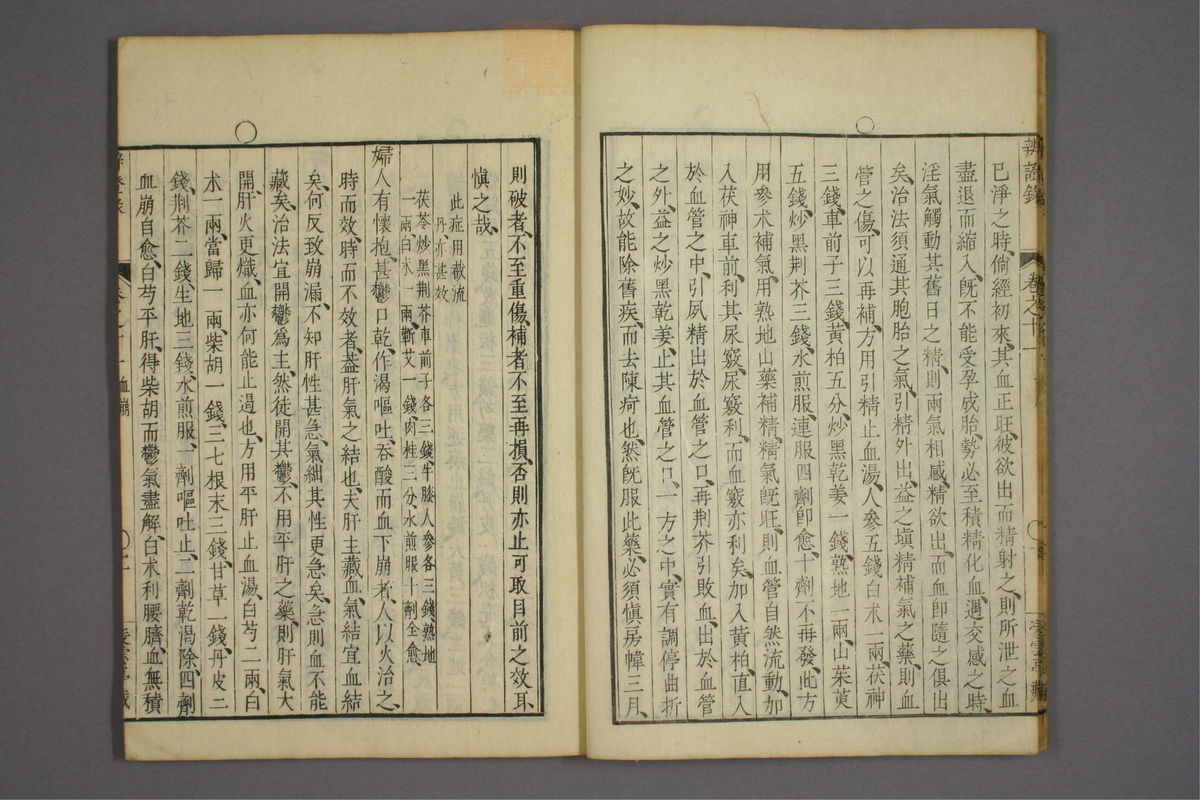 辨證錄 卷之十一
已淨之時、倘經初來、其血正旺、彼欲出而精射之、則所泄之血
盡退而縮入、旣不能受孕成胎、勢必至積精化血、遇交感之時、
淫氣觸動其舊日之精、則兩氣相感、精欲出、而血卽隨之俱出
矣、治法須通其胞胎之氣、引精外出、益之塡精補氣之藥、則血
管之傷、可以再補、方用引精止血湯、人參五錢白朮一兩、茯神
三錢、車前子三錢、黃柏五分、炒黑乾姜一錢、熟地一兩、山茱萸
五錢、炒黑荆芥三錢、水煎服、連服四劑卽愈、十劑不再發、此方
用參朮補氣、用熟地山藥補精、精氣旣旺、則血管自然流動、加
入茯神車前、利其尿竅、尿竅利、而血竅亦利矣、加入黃柏、直入
於血管之中、引夙精出於血管之口、再荆芥引敗血、出於血管
之外、益之炒黑乾姜、止其血管之口、一方之中、實有調停曲折
之妙、故能除舊疾、而去陳疴也、然旣服此藥、必須愼房幃三月、
則破者不至重傷、補者不至再損、否則亦止可取目前之效耳、
愼之哉
此症用截流
丹亦甚效
茯苓炒黑荆芥車前子各三錢、牛膝人參各三錢、熟地
一兩、白朮一兩、蘄艾一錢、肉桂三分、水煎服十劑全愈、
婦人有懷抱甚鬱、口乾作渴、嘔吐吞酸、而血下崩者、人以火治之、
時而效、時而不效者、葢肝氣之結也、夫肝主藏血、氣結宜血結
矣、何反致崩漏、不知肝性甚急、氣結其性更急矣、急則血不能
藏矣、治法宜開鬱爲主、然徒開其鬱、不用平肝之藥、則肝氣大
開、肝火更熾、血亦何能止遏也、方用平肝止血湯、白芍二兩、白
朮一兩、當歸一兩、柴胡一錢、三七根末三錢、甘草一錢、丹皮三
錢、荆芥二錢、生地三錢、水煎服、一劑嘔吐止、二劑乾渴除、四劑
血崩自愈、白芍平肝、得柴胡而鬱氣盡解、白朮利腰臍、血無積